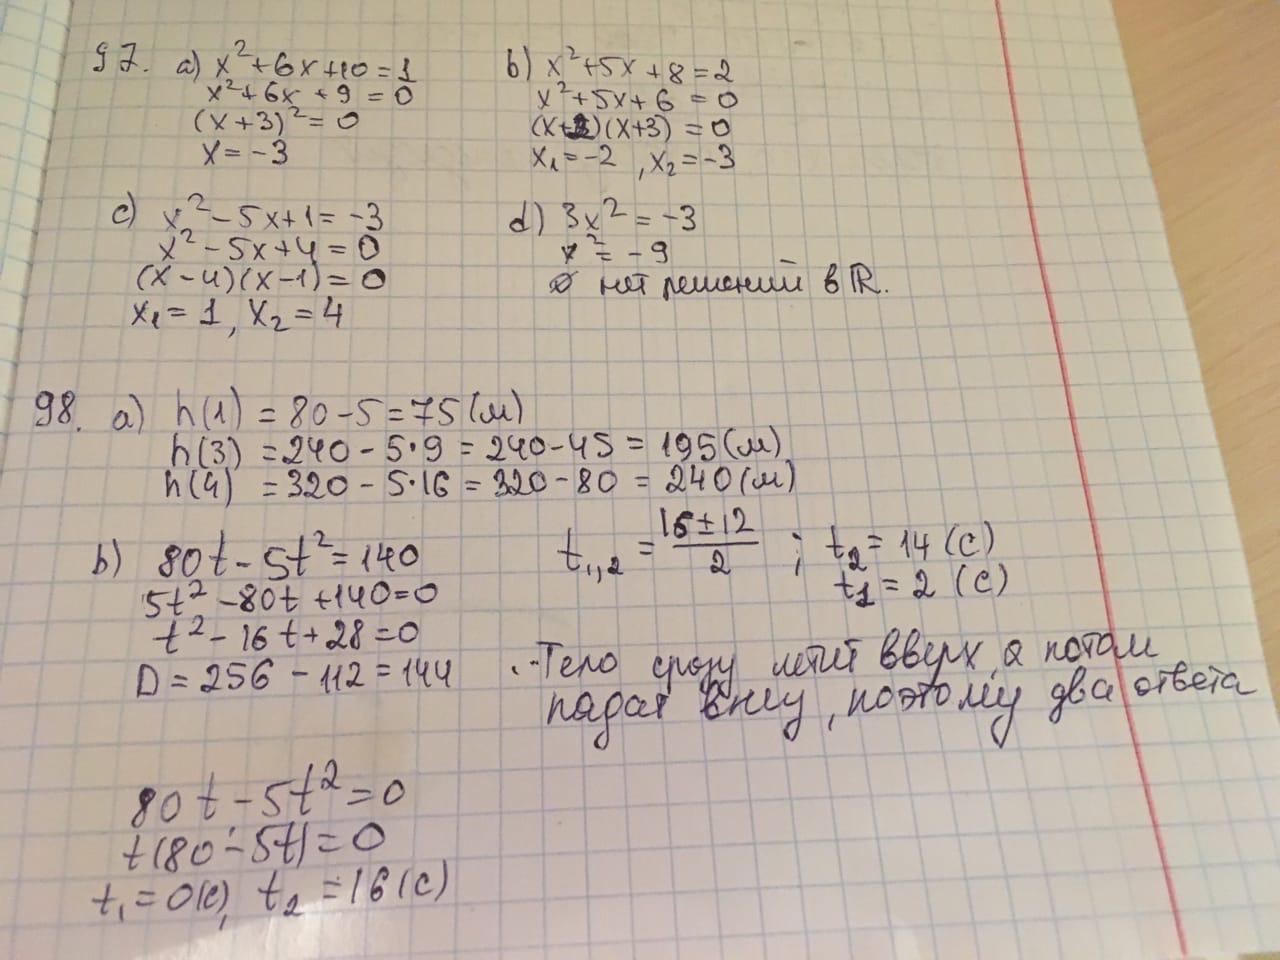 97. a) x²+6x+10=1
x²+6x+9=0
(x+3)²=0
x=-3
b) x²+5x+8=2
x²+5x+6=0
(x+2)(x+3)=0
x₁=-2, x₂=-3
c) x²-5x+1=-3
x²-5x+4=0
(x-4)(x-1)=0
x₁=1, x₂=4
d) 3x²=-3
x²=-9
∅ нет решений в ℝ.
98. a) h(1)=80-5=75(м)
h(3)=240-5·9=240-45=195(м)
h(4)=320-5·16=320-80=240(м)
b) 80t-5t²=140
5t²-80t+140=0
t²-16t+28=0
D=256-112=144
t₁,₂=(16±12)/2; t₂=14(с)
t₁=2(с)
Тело сразу летит вверх, а потом
падает вниз, поэтому два ответа
80t-5t²=0
t(80-5t)=0
t₁=0(с), t₂=16(с)